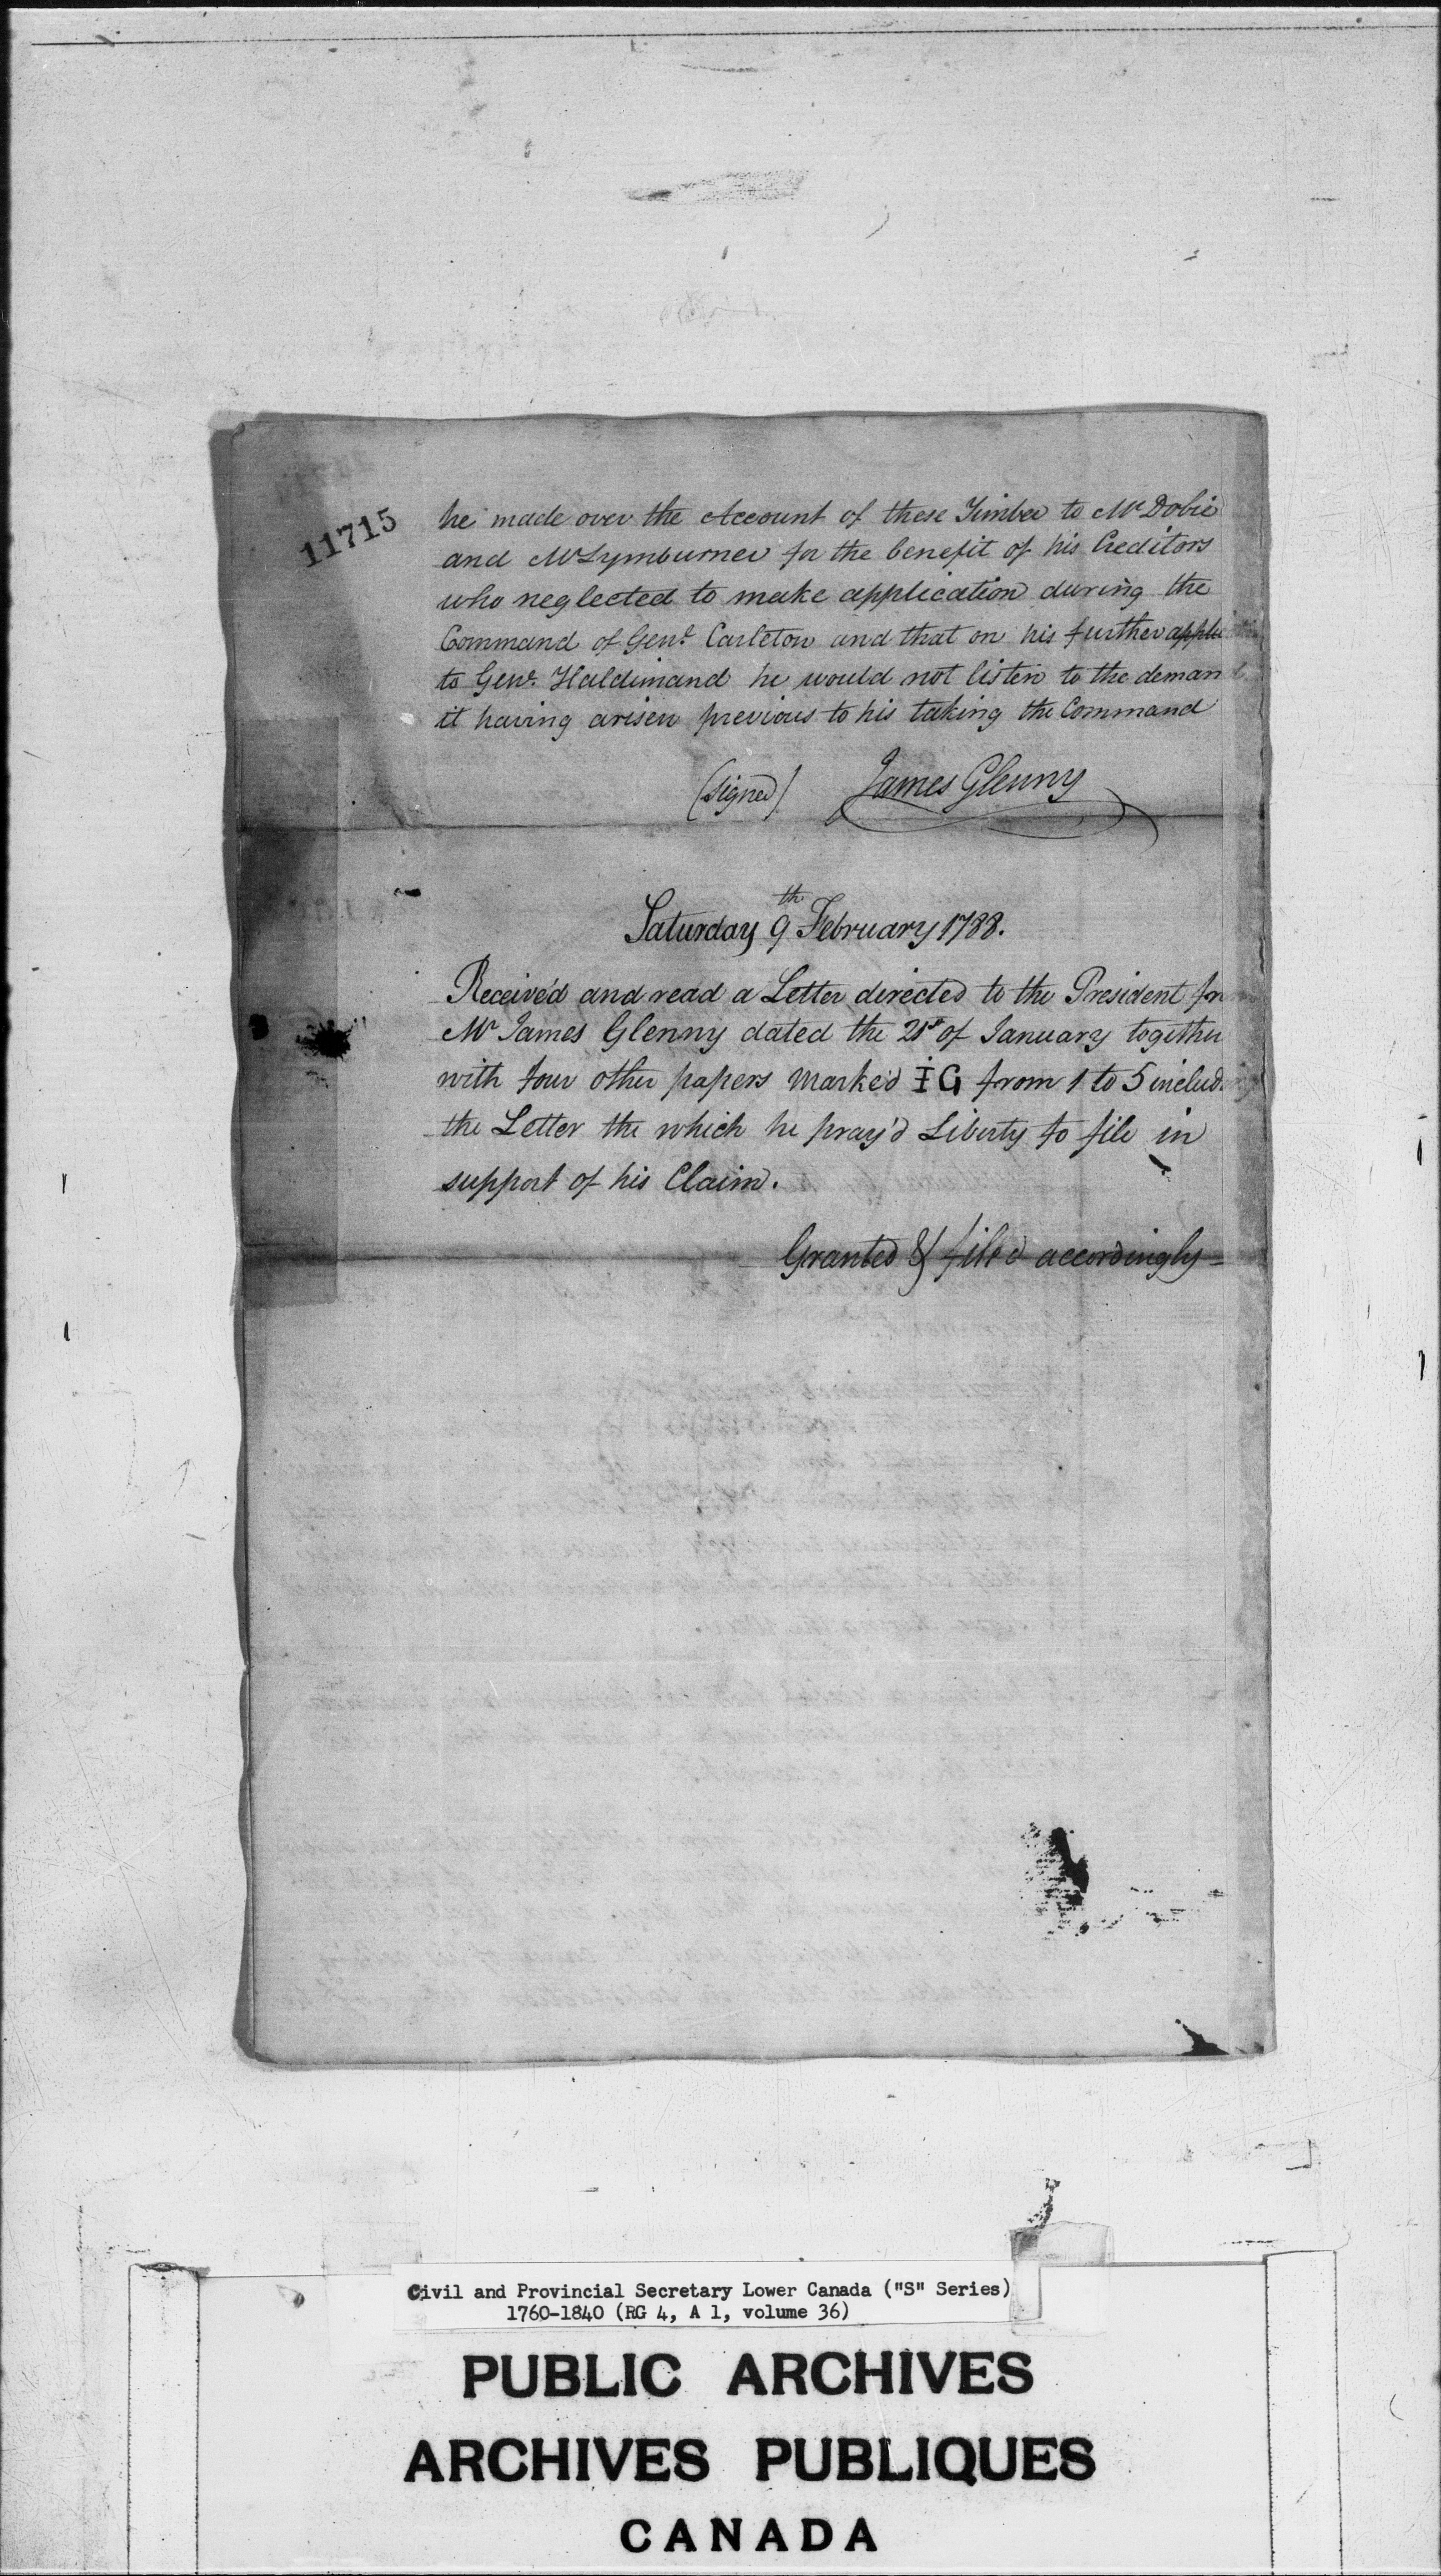 11715
he made over the Account of these Timber to Mr Dobie
and Mr Lymburner for the benefit of his Creditors
who neglected to make application during the
Command of Genl. Carleton and that on his further
to Genl. Haldimand he would not listen to the demand
it having arisen previous to his taking the Command
(signed) James Glenny
Saturday 9th February 1788.
Receiv'd and read a Letter directed to the President from
Mr James Glenny dated the 21st of January together
with four other papers marked I G from 1 to 5 includ
the Letter the which he pray'd Liberty to file in
support of his Claim.
Granted & filed accordingly
Civil and Provincial Secretary Lower Canada ("S" Series)
1760-1840 (RG 4, A 1, volume 36)
PUBLIC ARCHIVES
ARCHIVES PUBLIQUES
CANADA